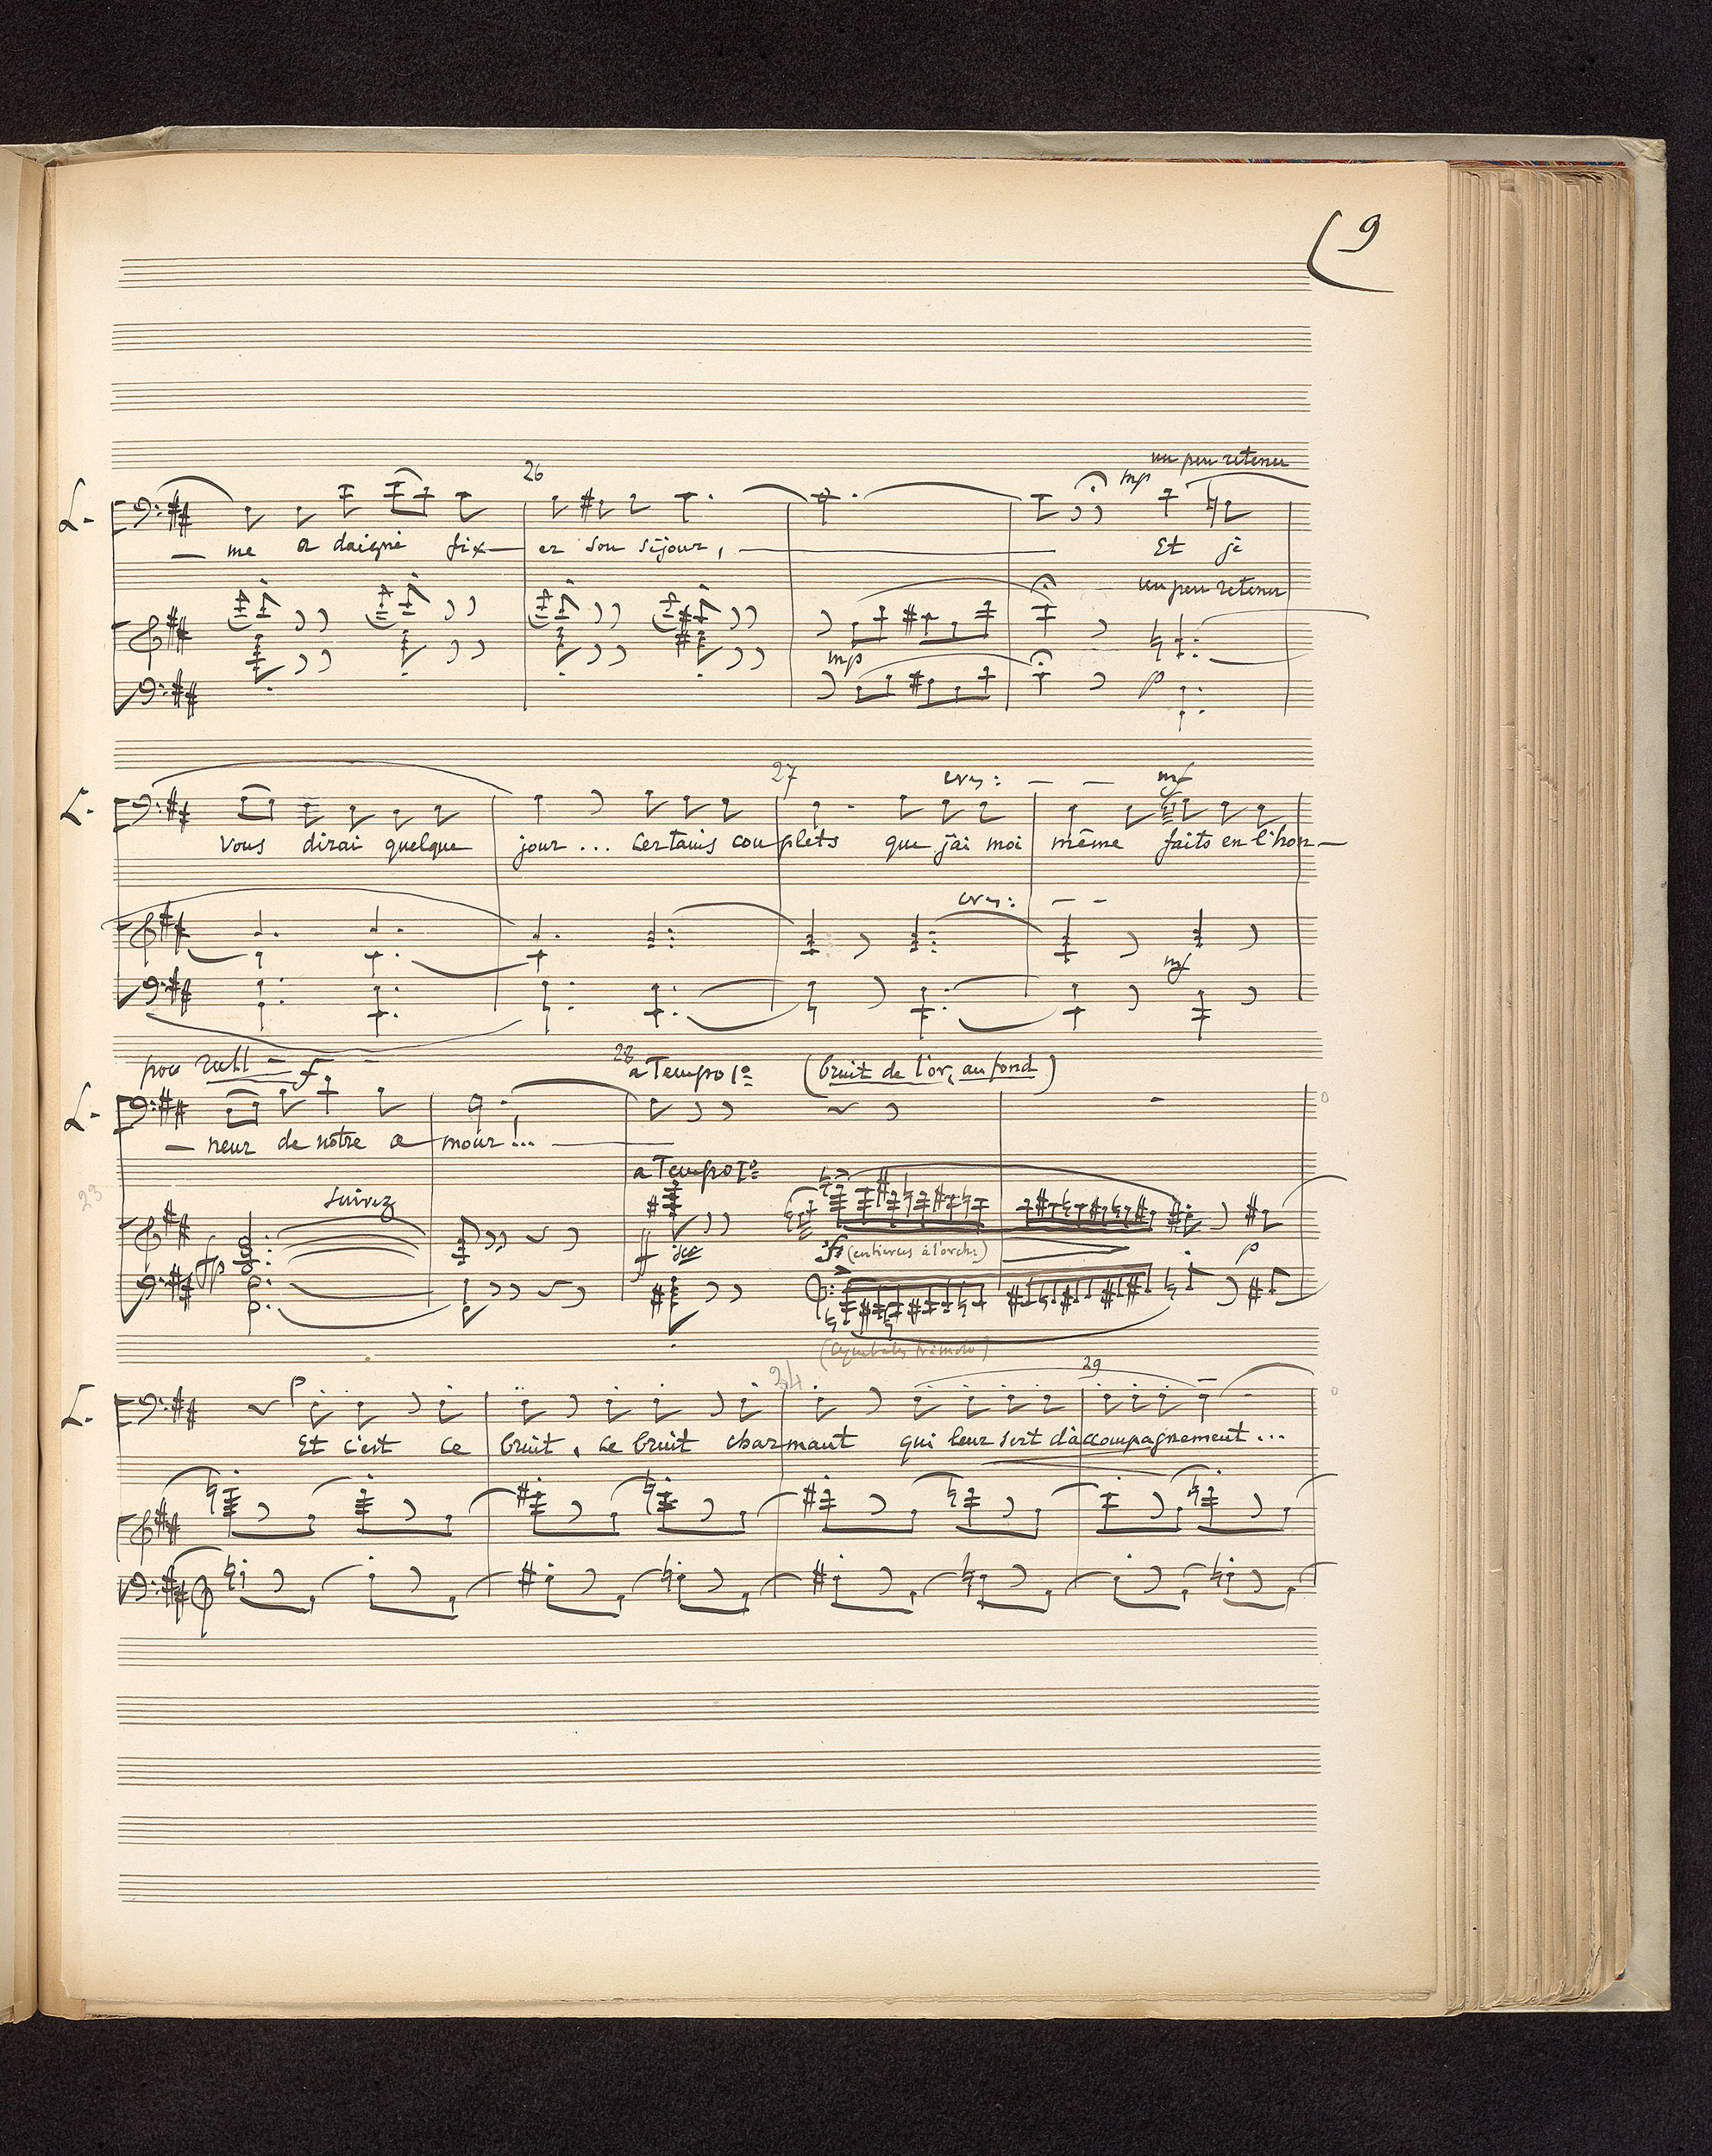 9
un peu retenu
26
mp
L.
— me a daigné fix — er son séjour, —
Et je
un peu retenu
mp
p
27
cres: — —
mf
L.
vous dirai quelque jour... certains couplets que j'ai moi même faits en l'hon —
cres: — —
mf
poco rall — f —
28
a Tempo 1º
(bruit de l'or, au fond)
L.
— neur de notre a — mour!.. —
a Tempo 1º
23
suivez
fp
ff sec
sf (entières à l'orch:)
p
(cymbales trémolo)
24
29
p
L.
Et c'est ce bruit, ce bruit charmant qui leur sert d'accompagnement...